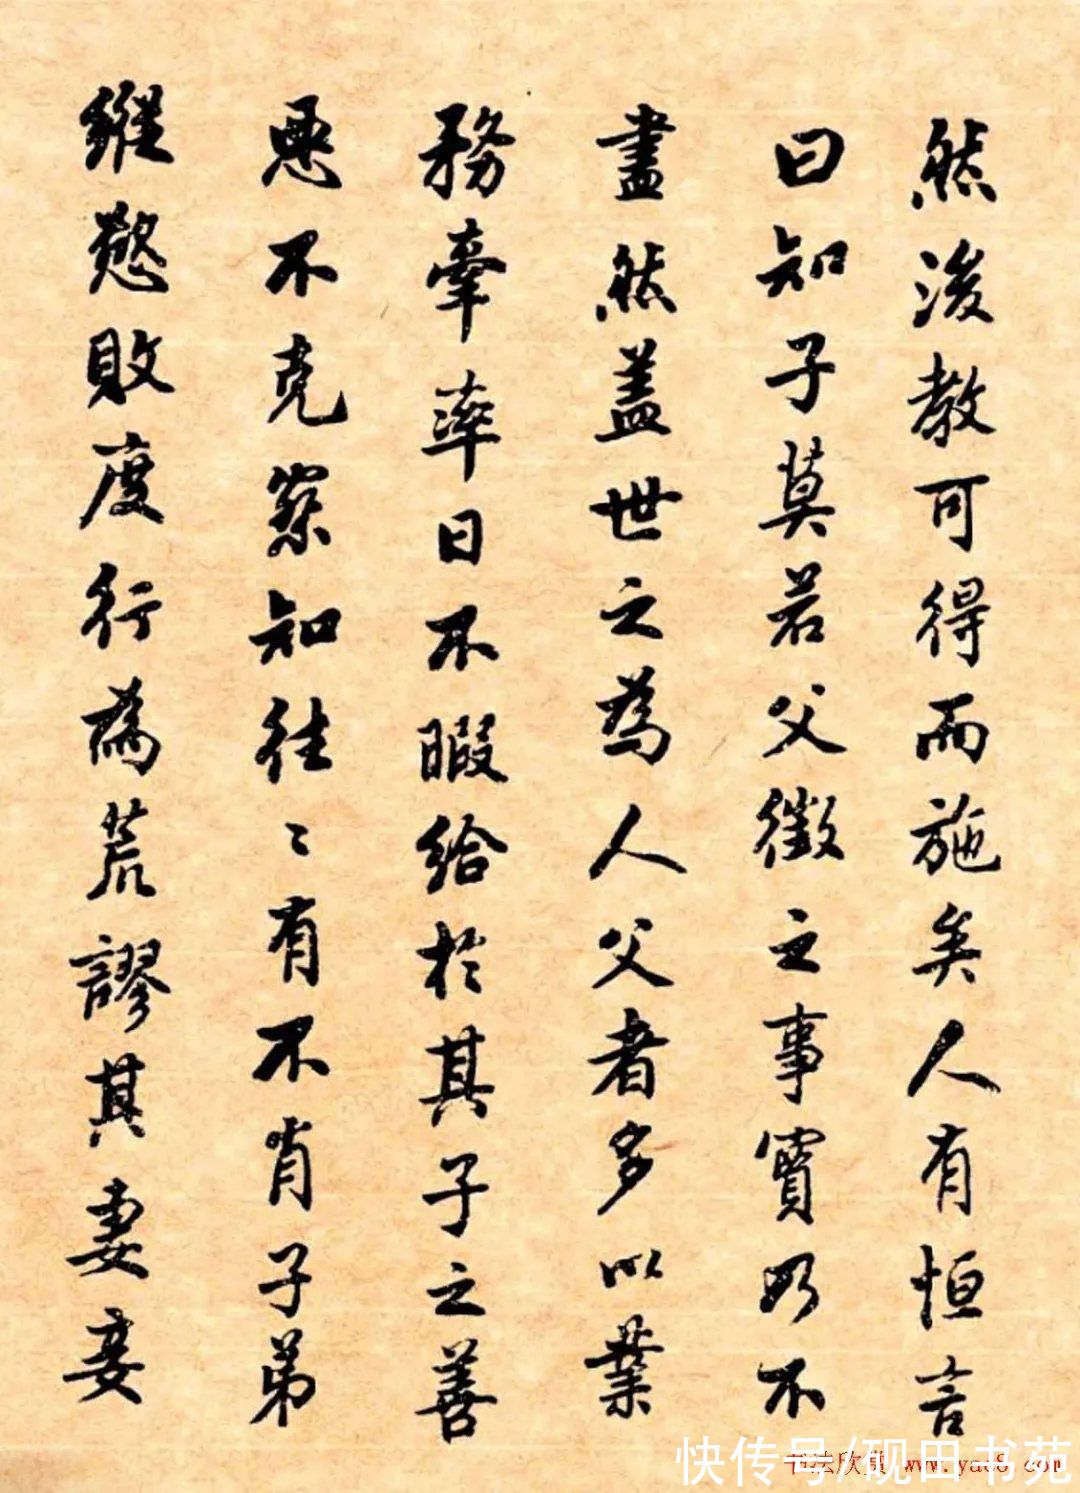 然後教可得而施矣人有恒言
曰知子莫若父徵之事實乃不
盡然蓋世之為人父者多以業
務牽率日不暇給於其子之善
惡不克察知往〻有不肖子弟
縱慾敗度行為荒謬其妻妾
快传号/砚田书苑
书法欣赏 www.yac8.com